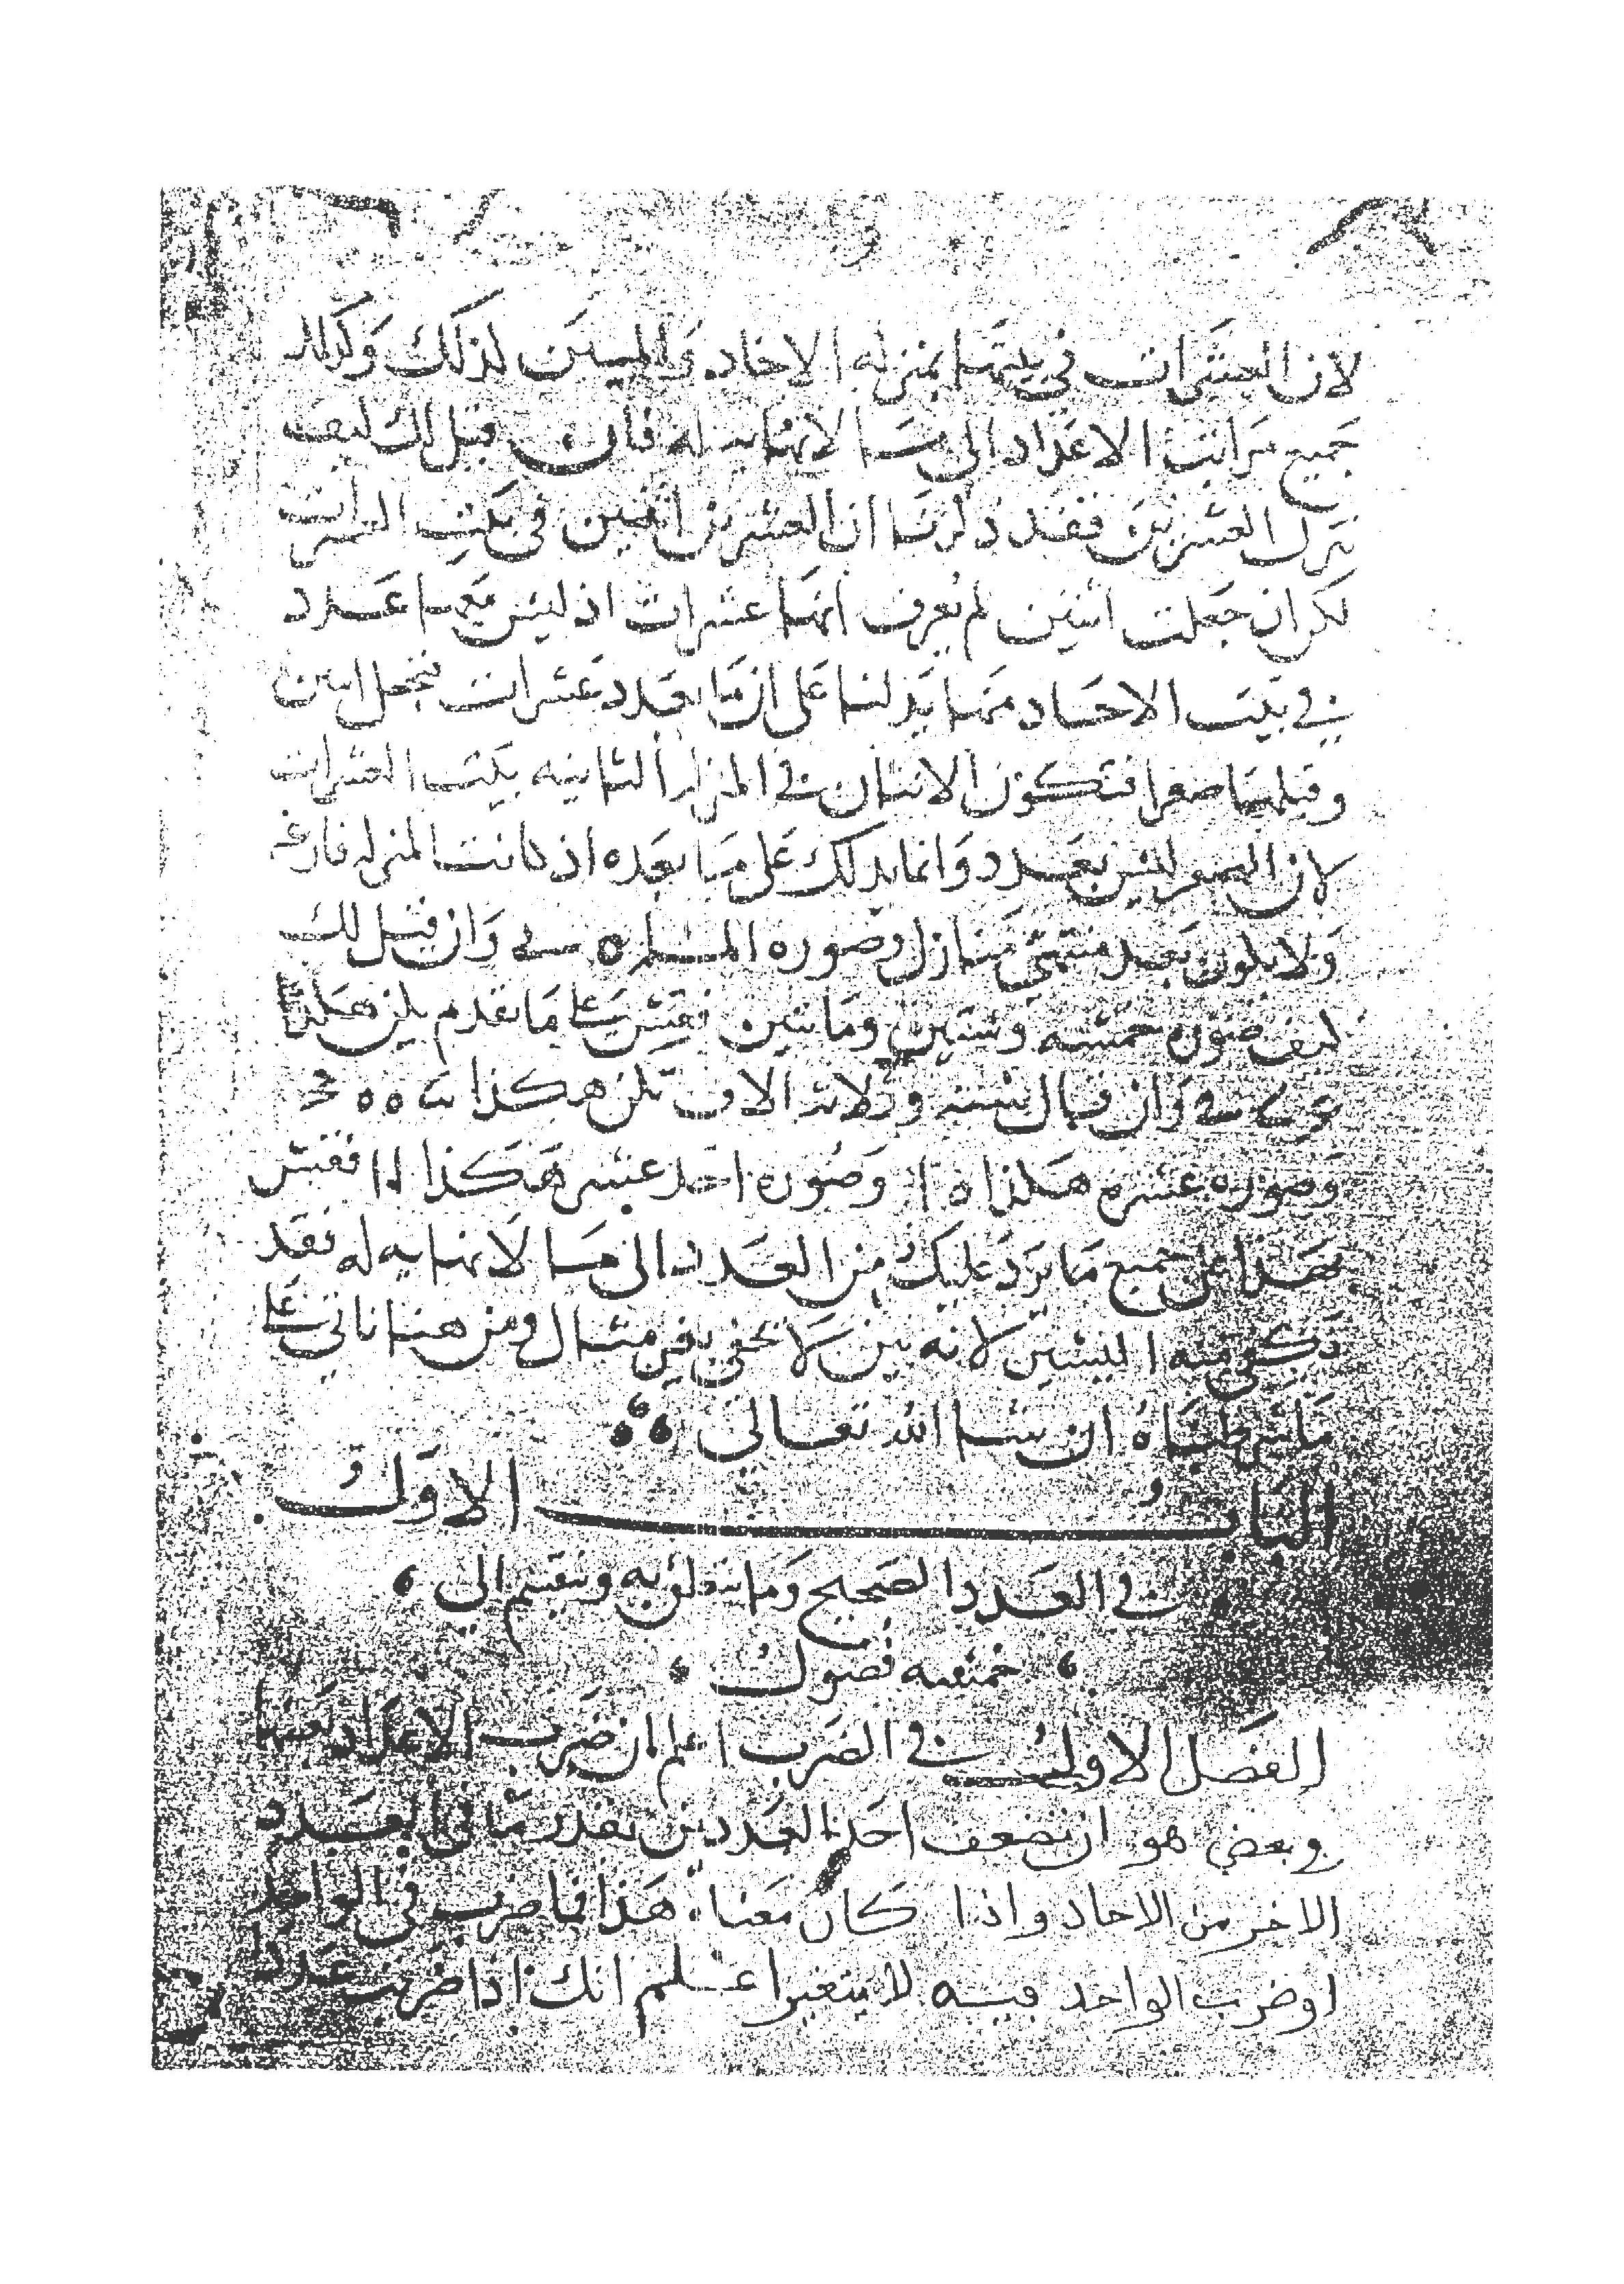 لان العشرات في بيتها بمنزله الاحاد والميين كذلك وكذلك
جميع مراتب الاعداد الى ما لا نهايه له فان قيل لك كيف
ننزل العشرين فقد ذكرنا ان العشرين اثنين في بيت العشرات
لكن ان جعلت اثنين لم يعرف انها عشرات اذ ليس معها عدد
في بيت الاحاد منها يدلنا على انها بعدد عشرات فنجعل اثنين
وقبلها صفرا فتكون الاثنان في المنزله الثانيه بيت العشرات
لان الصفر ليس بعدد وانما يدلك على ما بعده اذ كانت المنزله فارغه
ولا يكون بعد منتهى منازل وصوره المساله ٥ وان قيل لك
كيف صوره خمسه وستين ومايتين فقس على ما تقدم يكن هكذا
وان قال سته وثلاثه الاف يكن هكذا
وصوره عشره هكذا ٥١ وصوره احد عشر هكذا ١١ فقس
بهذا على جميع ما يرد عليك من العدد الى ما لا نهايه له فقد
لانه بين لا يخفى مثال ومن هنا ناتي على
ما شرطناه ان شا الله تعالى
البابُ الاولُ
في العدد الصحيح وما يتعلق به وينقسم الى
خمسه فصول
الفصل الاول في الضرب اعلم ان ضرب الاعداد بعضها
وبعض هو ان تضعف احد العددين بقدر ما في العدد
الاخر من الاحاد واذا كان معنا هذا فما ضرب في الواحد
او ضرب الواحد فيه لا يتغير اعلم انك اذا ضربت عددا